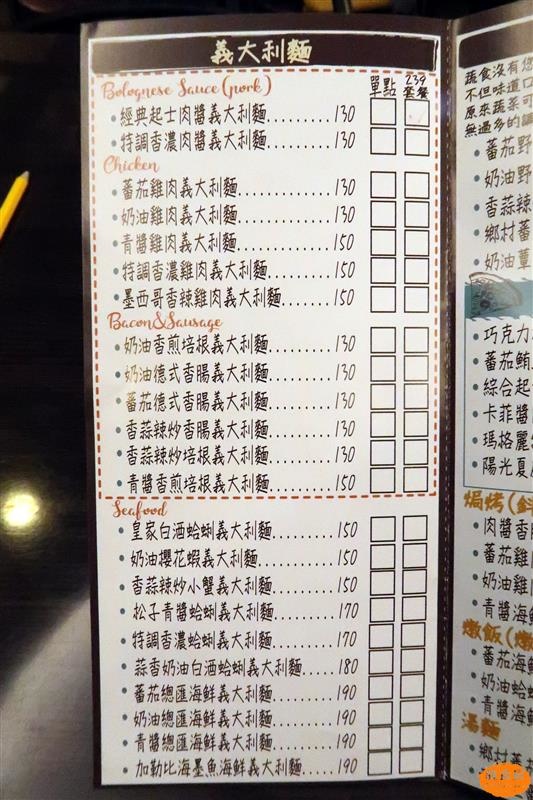 義大利麵
Bolognese Sauce (pork)
單點
239
套餐
經典起士肉醬義大利麵..........130
特調香濃肉醬義大利麵..........130
Chicken
蕃茄雞肉義大利麵..............130
奶油雞肉義大利麵..............130
青醬雞肉義大利麵..............150
特調香濃雞肉義大利麵..........150
墨西哥香辣雞肉義大利麵........150
Bacon&Sausage
奶油香煎培根義大利麵..........130
奶油德式香腸義大利麵..........130
蕃茄德式香腸義大利麵..........130
香蒜辣炒香腸義大利麵..........130
香蒜辣炒培根義大利麵..........130
青醬香煎培根義大利麵..........150
Seafood
皇家白酒蛤蜊義大利麵..........150
奶油櫻花蝦義大利麵............150
香蒜辣炒小蟹義大利麵..........150
松子青醬蛤蜊義大利麵..........170
特調香濃蛤蜊義大利麵..........170
蒜香奶油白酒蛤蜊義大利麵......180
蕃茄總匯海鮮義大利麵..........190
奶油總匯海鮮義大利麵..........190
青醬總匯海鮮義大利麵..........190
加勒比海墨魚海鮮義大利麵......190
蔬食沒有您
不但味道口
原來蔬菜可
無過多的調
蕃茄野
奶油野
香蒜辣
鄉村蕃
奶油蕈
巧克力
蕃茄鮪
綜合起
卡菲醬
瑪格麗
陽光夏
焗烤(
肉醬香
蕃茄雞
奶油雞
青醬海
燉飯(燉
蕃茄海
奶油蛤
青醬海
湯麵
鄉村蕃